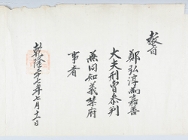 教旨
鄭弘淳爲嘉善
大夫刑曹參判
兼同知義禁府
事者
乾隆 年 七月 十 日